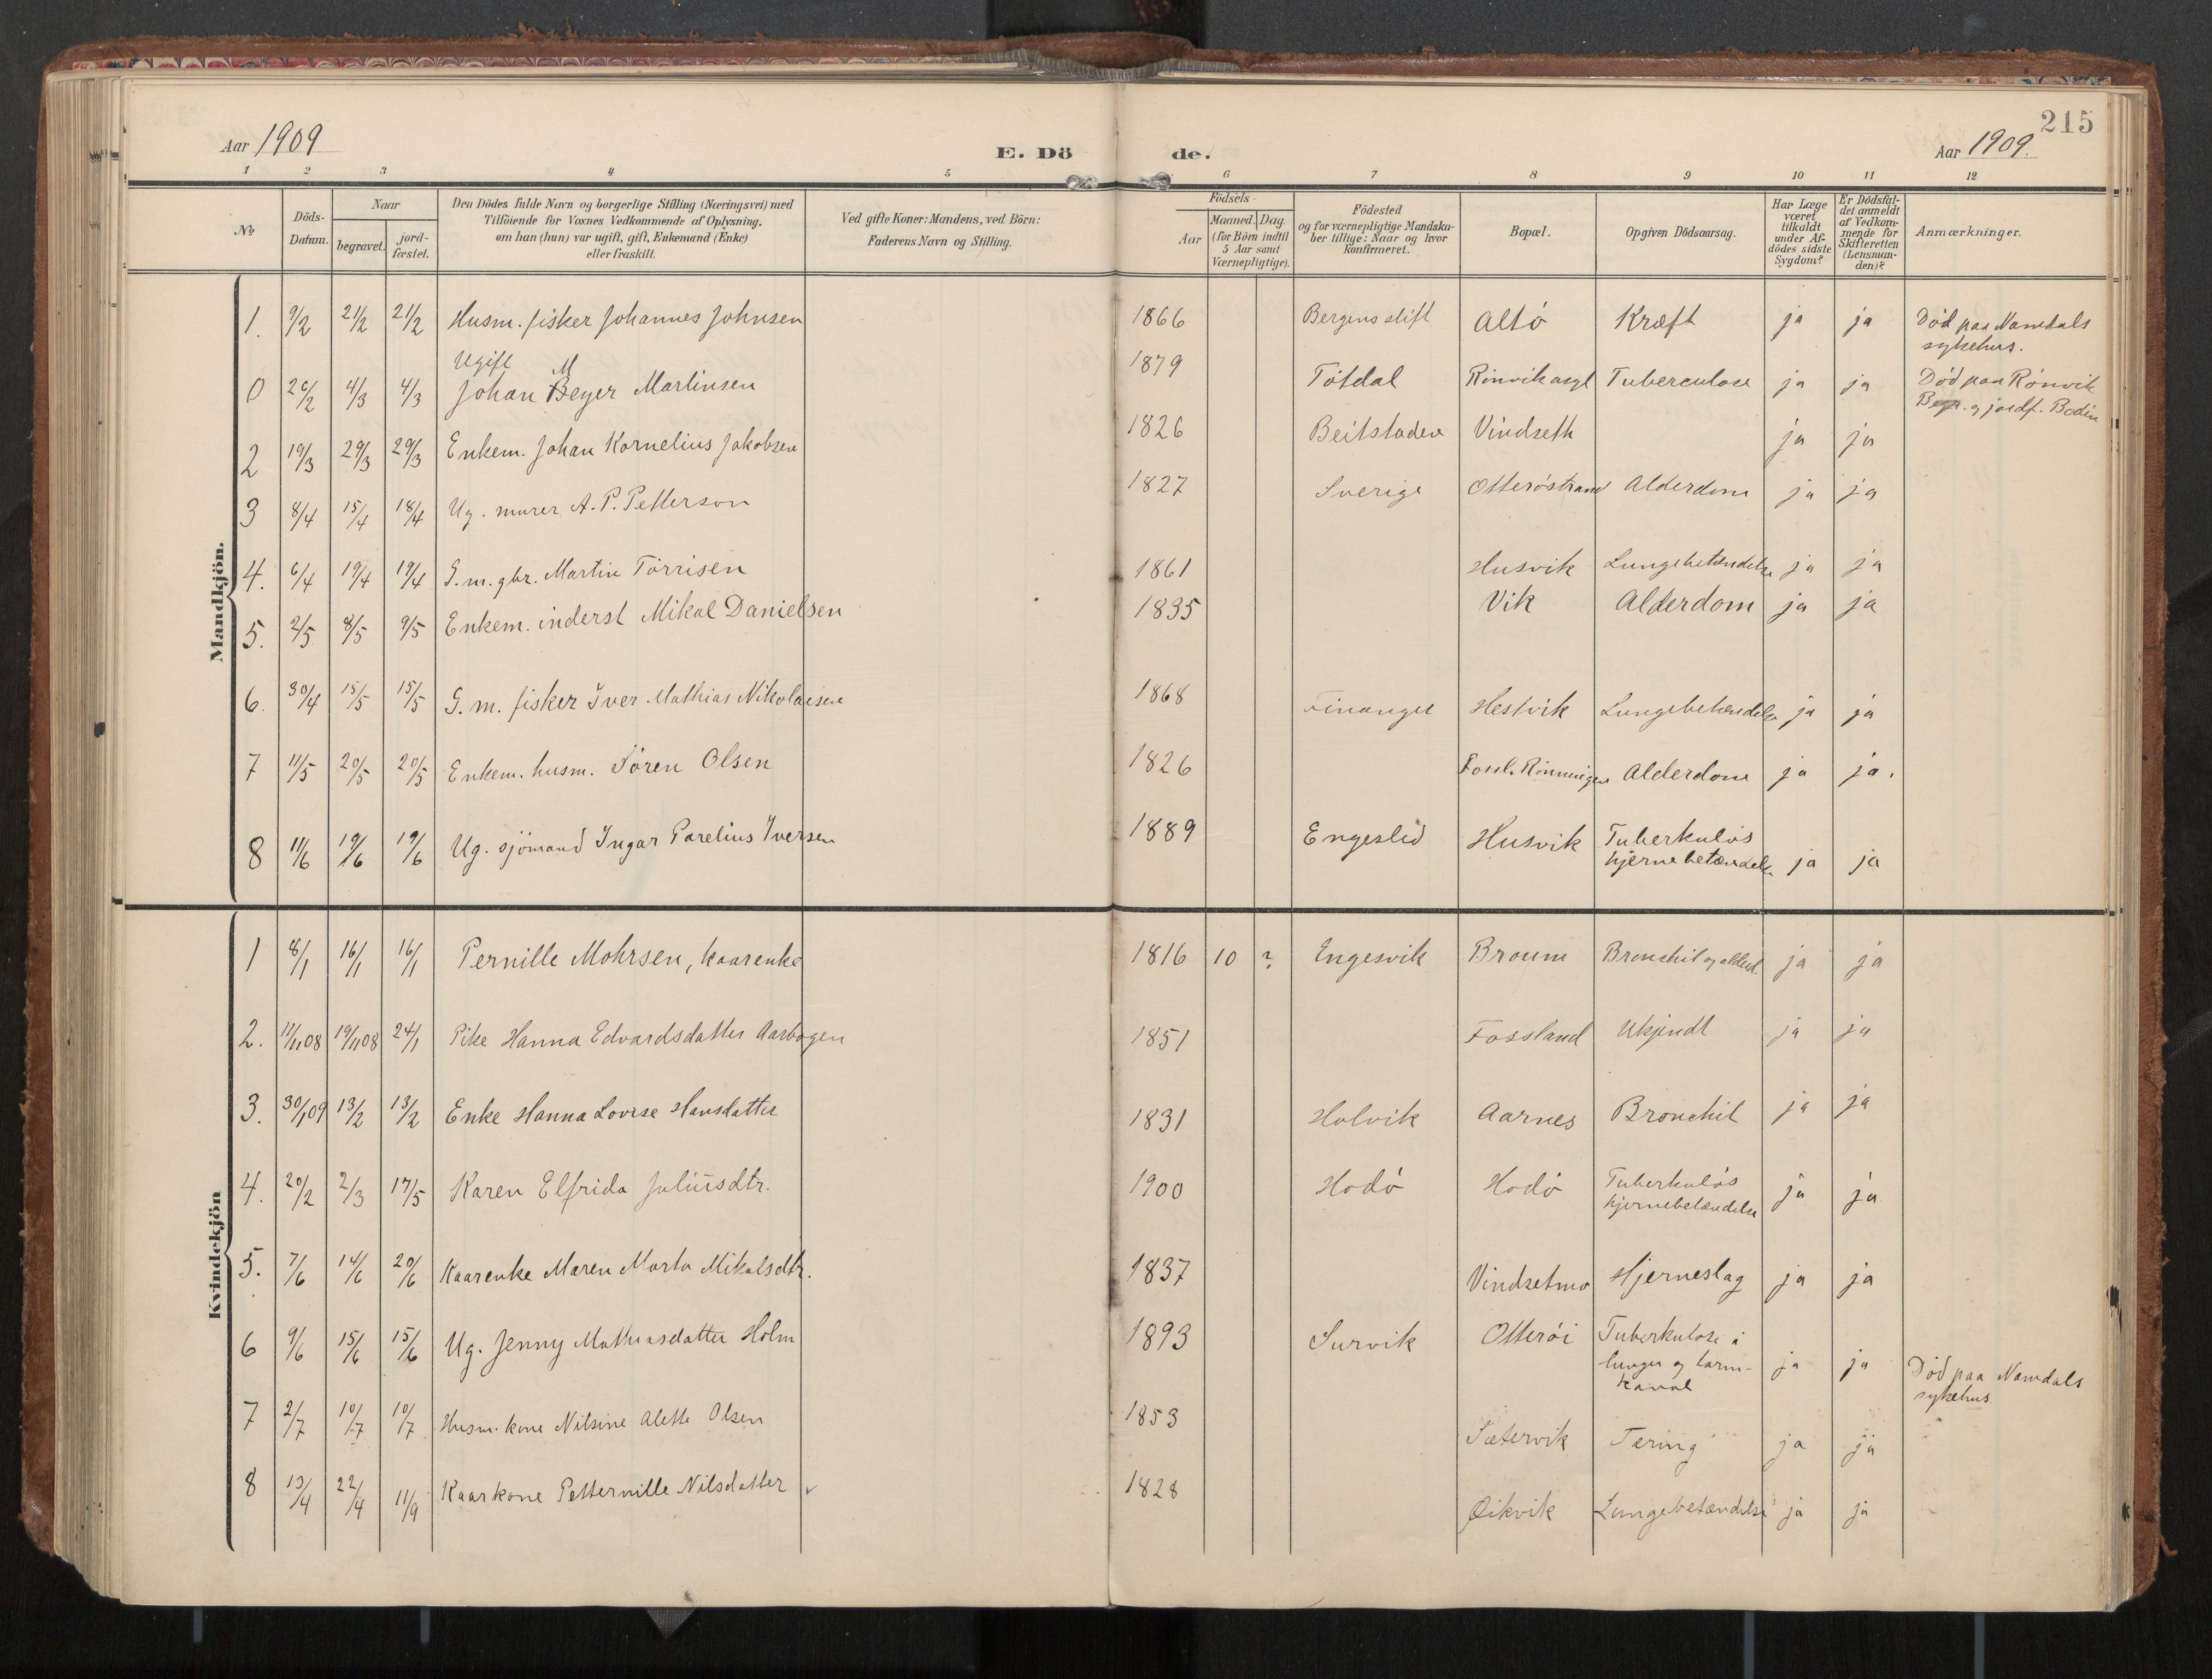 215
Aar 1909
E. Dö
de.
Aar 1909.
1 2 3 4 5 6 7 8 9 10 11 12
No
Döds-Datum.
Naar
begravet.
jord-fæstet.
Den Dödes fulde Navn og borgerlige Stilling (Næringsvei) med
Tilföiende for Voxnes Vedkommende af Oplysning,
om han (hun) var ugift, gift, Enkemand (Enke)
eller fraskilt.
Ved gifte Koner: Mandens, ved Börn:
Faderens Navn og Stilling.
Födsels-
Aar
Maaned. Dag.
(for Börn indtil
5 Aar samt
Værnepligtige).
Födested
og for værnepligtige Mandska-
ber tillige: Naar og hvor
konfirmeret.
Bopæl.
Opgiven Dödsaarsag.
Har Læge
været
tilkaldt
under Af-
dödes sidste
Sygdom?
Er Dödsfal-
det anmeldt
af Vedkom-
mende for
Skifteretten
(Lensman-
den)?
Anmærkninger.
Mandkjön.
1. 9/2 21/2 21/2 Husm. fisker Johannes Johnsen 1866 Bergens stift Altö Kræft ja ja Död paa Namdals
sykehus.
Ugift M
0 26/2 4/3 4/3 Johan Beyer Martinsen 1879 Tötdal Rönvik asyl Tuberculose ja ja Död paa Rönvik
Begr. og jordf. Bodin
2 19/3 29/3 29/3 Enkem. Johan Kornelius Jakobsen 1826 Beitstaden Vindseth ja ja
3 8/4 15/4 18/4 Ug. murer A. P. Petterson 1827 Sverige Otteröstrand Alderdom ja ja
4. 6/4 19/4 19/4 G. m. gbr. Martin Törrisen 1861 Husvik Lungebetændelse ja ja
5. 2/5 8/5 9/5 Enkem. inderst Mikal Danielsen 1835 Vik Alderdom ja ja
6. 30/4 15/5 15/5 G. m. fisker Iver Mathias Nikolaisen 1868 Finanger Hestvik Lungebetændelse ja ja
7 11/5 20/5 20/5 Enkem. husm. Sören Olsen 1826 Fossl. Rönningen Alderdom ja ja.
8 11/6 19/6 19/6 Ug. sjömand Ingar Parelius Iversen 1889 Engeslid Husvik Tuberkulös
hjernebetændelse ja ja
Kvindekjön
1 8/1 16/1 16/1 Pernille Mohrsen, kaarenke 1816 10 ? Engesvik Broum Bronchit og alderd. ja ja
2. 11/11 08 19/11 08 24/1 Pike Hanna Edvardsdatter Aarbogen 1851 Fossland Ukjendt ja ja
3. 30/1 09 13/2 13/2 Enke Hanna Lovise Hansdatter 1831 Holvik Aarnes Bronchit ja ja
4. 20/2 2/3 17/5 Karen Elfrida Juliusdtr. 1900 Hodö Hodö Tuberkulös
hjernebetændelse ja ja
5. 7/6 14/6 20/6 Kaarenke Maren Marta Mikalsdtr. 1837 Vindsetmo Hjerneslag ja ja
6 9/6 15/6 15/6 Ug. Jenny Mathiasdatter Holm 1893 Survik Otteröi Tuberkulose i
lunger og tarm-
kanal ja ja Död paa Namdals
sykehus
7 2/7 10/7 10/7 Husm. kone Nilsine Alette Olsen 1853 Sætervik Tæring ja ja
8 13/4 22/4 11/9 Kaarkone Petternille Nilsdatter 1828 Eikvik Lungebetændelse ja ja